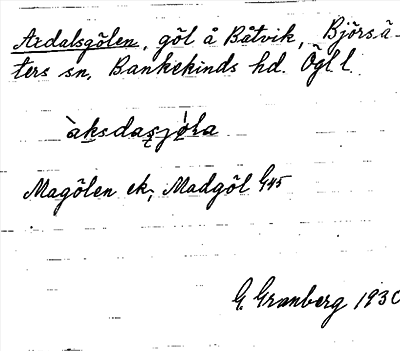 Axdalsgölen, göl å Båtvik, Björsä-
ters sn, Bankekinds hd. Ögl l.
àksdasjo̩ḷa
Magölen ek; Madgöl G45
G. Granberg 1930